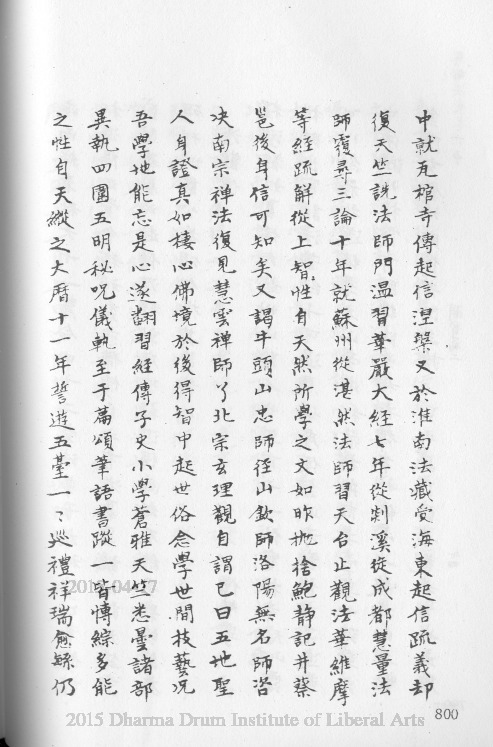 中就瓦棺寺傳起信涅槃又於淮南法藏受海東起信疏義却
復天竺詵法師門溫習華嚴大經七年從剡溪從成都慧量法
師覆尋三論十年就蘇州從湛然法師習天台止觀法華維摩
等經疏解從上智性自天然所學之文如昨拋捨鮑靜記井蔡
邕後身信可知矣又謁牛頭山忠師徑山欽師洛陽無名師咨
決南宗禅法復見慧雲禅師了北宗玄理觀自謂已曰五地聖
人身證真如棲心佛境於後得智中起世俗念學世間技藝况
吾學地能忘是心遂翻習經傳子史小學蒼雅天竺悉曇諸部
異執四圍五明秘呪儀軌至于篇頌筆語書蹤一皆博綜多能
之性自天縱之大曆十一年誓遊五臺一〻巡禮祥瑞愈繁仍
800
2015-04-27
2015 Dharma Drum Institute of Liberal Arts